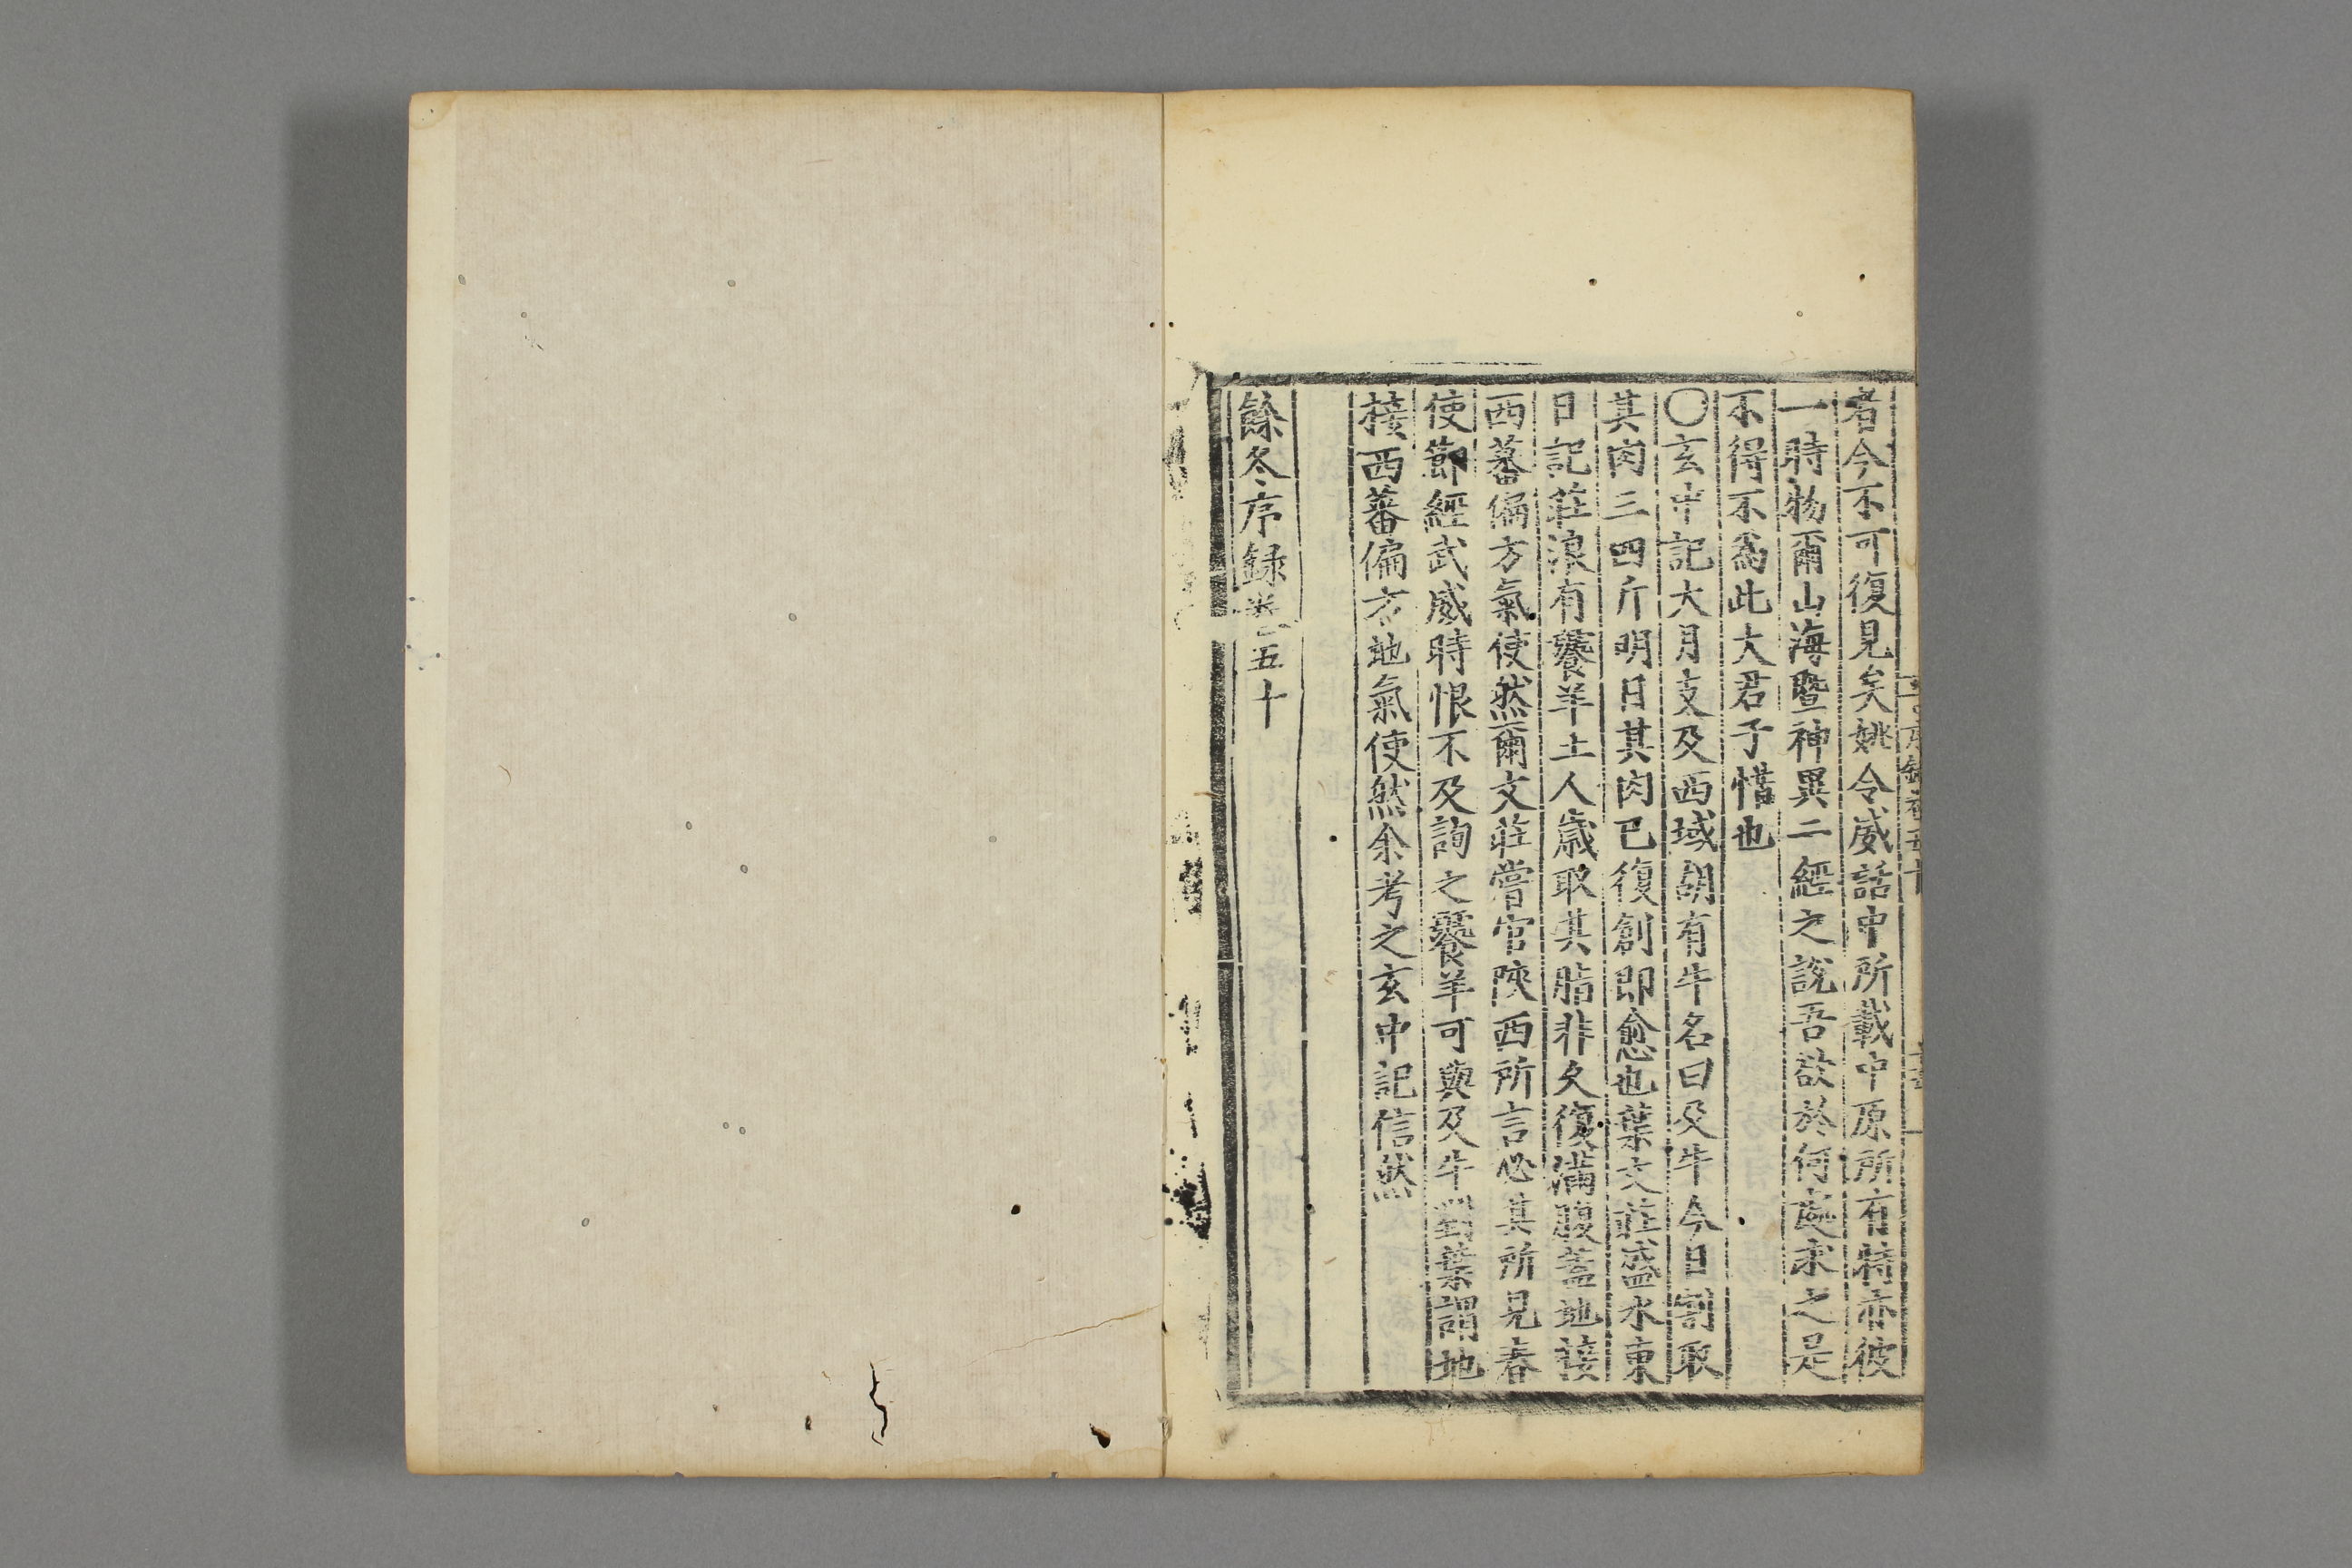 者今不可復見矣姚令威話中所載中原所有特亦彼
一時物爾山海曁神異二經之說吾欲於何處求之是
不得不爲此大君子惜也
〇玄中記大月支及西域胡有牛名曰及牛今日割取
其肉三四斤明日其肉已復創即愈也葉文莊盛水東
日記莊浪有饕羊土人歳取其脂非久復滿腹蓋地接
西蕃偏方氣使然爾文莊嘗官陝西所言必其所見春
使節經武威時恨不及詢之饕羊可與及牛對葉謂地
接西蕃偏方地氣使然余考之玄中記信然
餘冬序録卷之五十